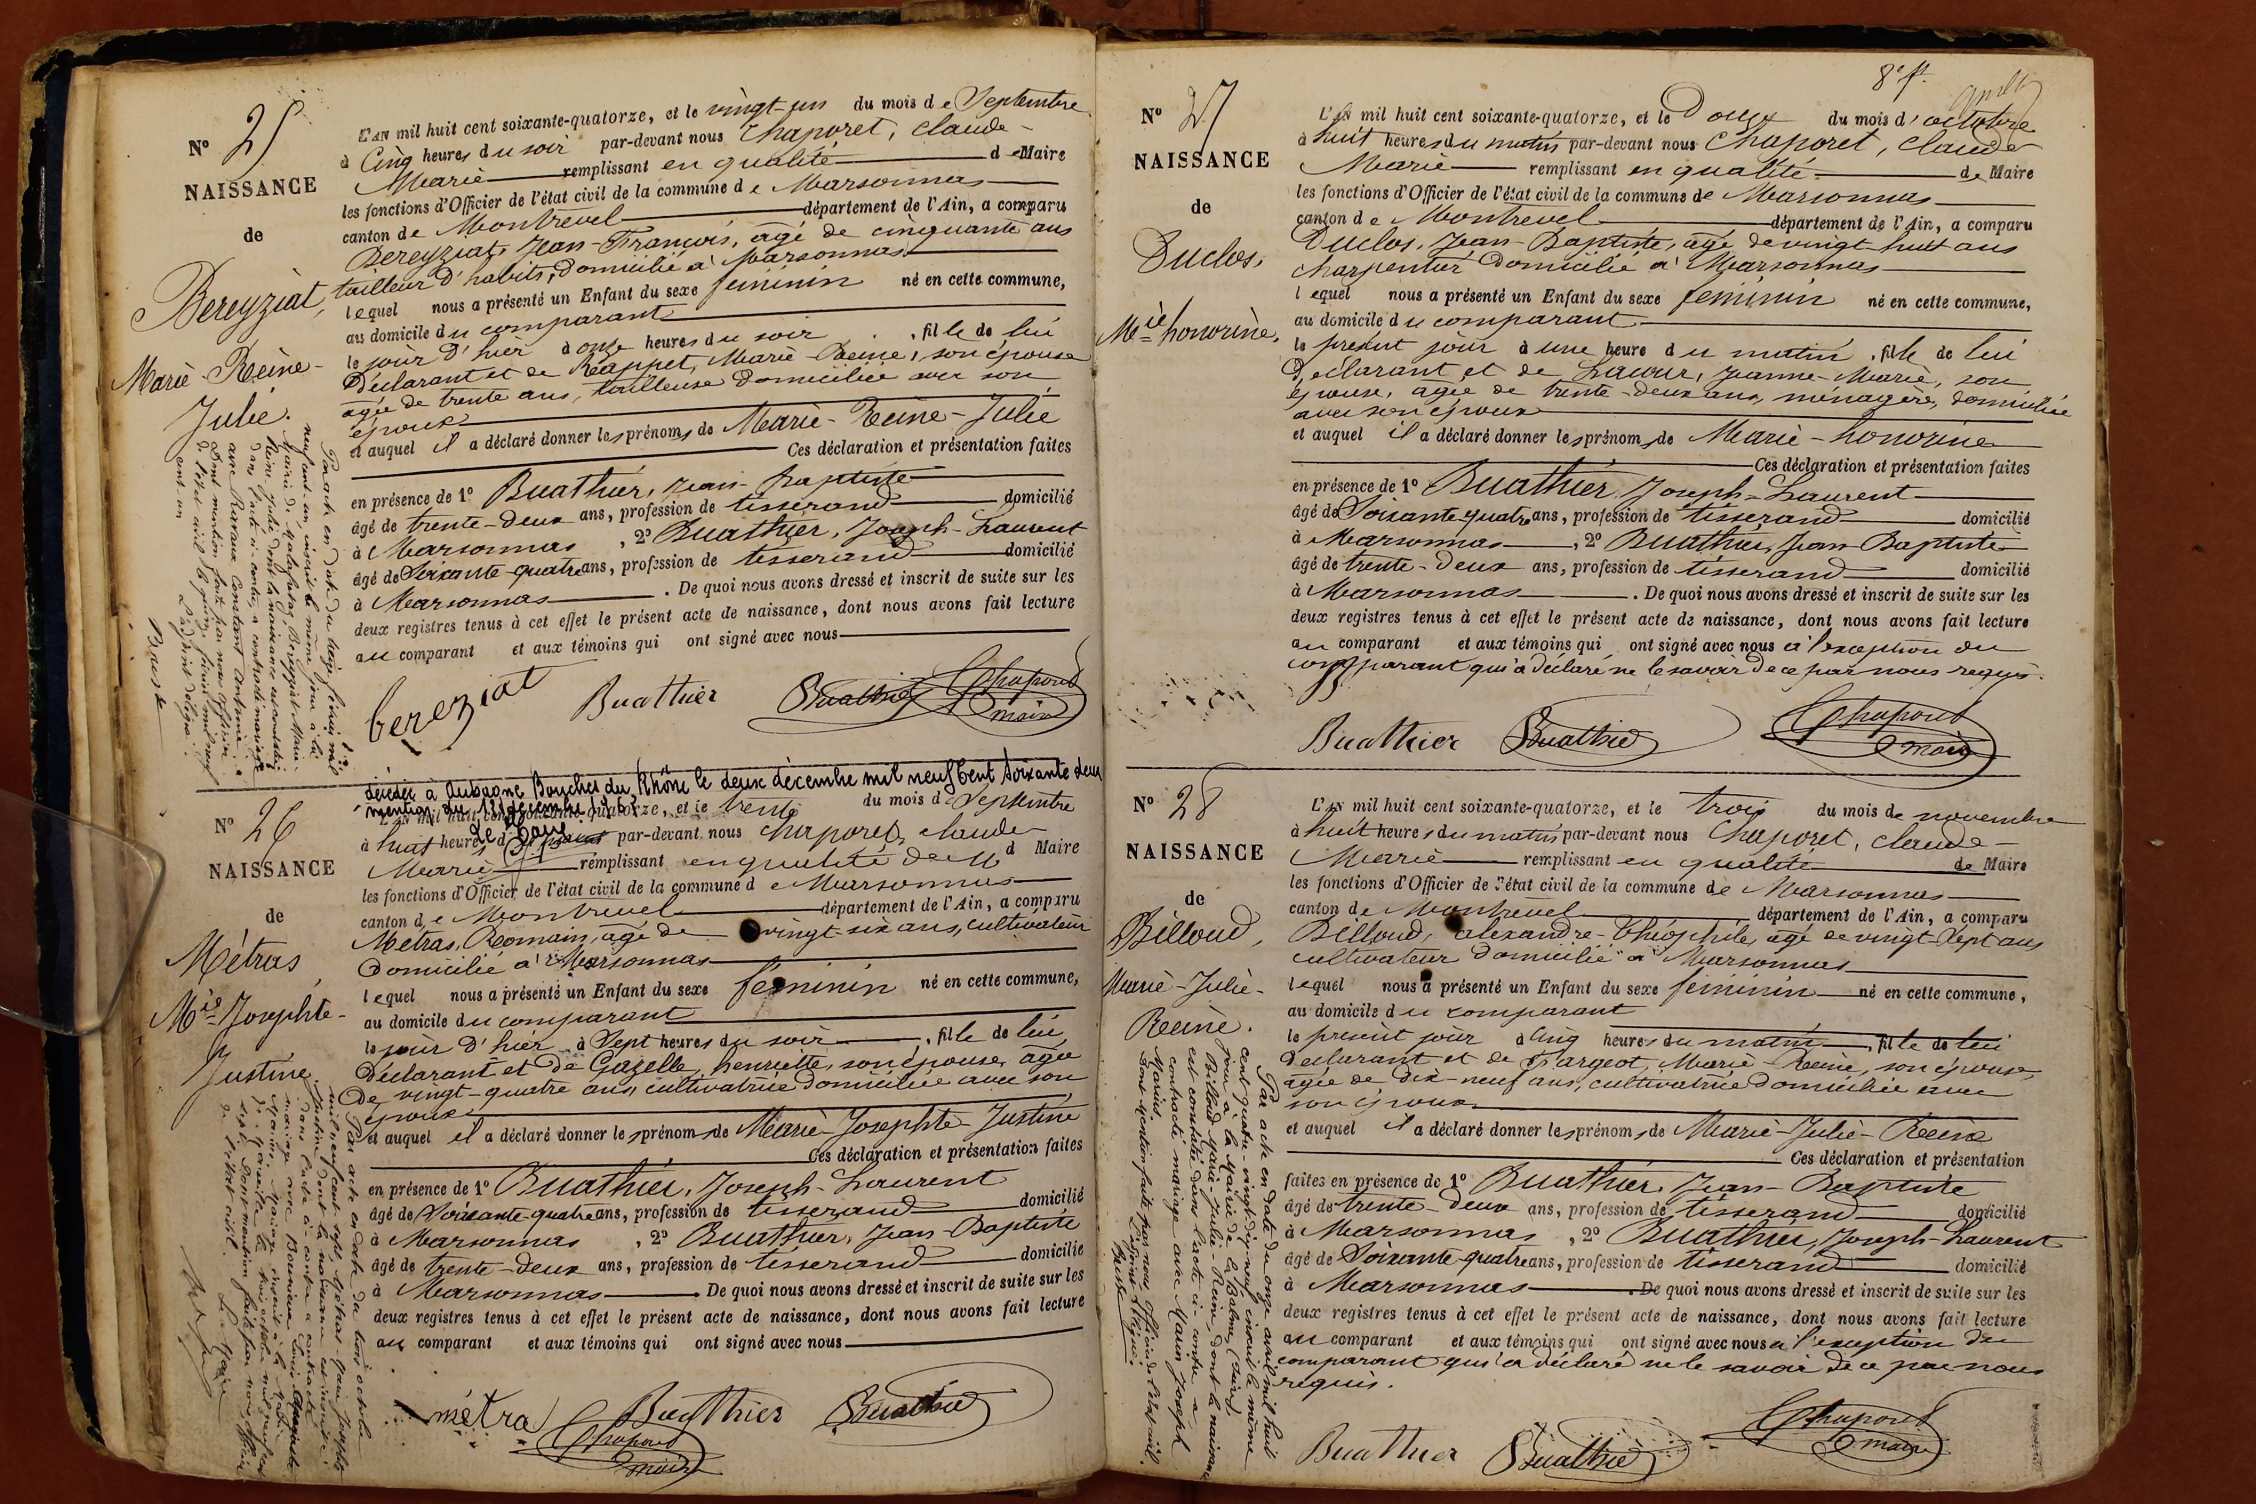 Nº 25
NAISSANCE
de
Bereyziat,
Marie-Reine-
Julie.
L'AN mil huit cent soixante-quatorze, et le vingt-un du mois de Septembre
à Cinq heures du soir par-devant nous Chaporet, Claude-
Marie remplissant en qualité de Maire
les fonctions d'Officier de l'état civil de la commune de Marsonnas
canton de Montrevel département de l'Ain, a comparu
Bereyziat, Jean-François, âgé de cinquante ans
tailleur d'habits, domicilié à Marsonnas
lequel nous a présenté un Enfant du sexe féminin né en cette commune,
au domicile du comparant
le jour d'hier à onze heures du soir, fille de lui
Déclarant et de Rappet, Marie-Reine, son épouse
agée de trente ans, tailleuse domiciliée avec son
époux
et auquel il a déclaré donner les prénoms de Marie-Reine-Julie
Ces déclaration et présentation faites
en présence de 1º Buathier, Jean-Baptiste
âgé de trente-deux ans, profession de tisserand domicilié
à Marsonnas, 2º Buathier, Joseph-Laurent
âgé de Soixante-quatre ans, profession de tisserand domicilié
à Marsonnas. De quoi nous avons dressé et inscrit de suite sur les
deux registres tenus à cet effet le présent acte de naissance, dont nous avons fait lecture
au comparant et aux témoins qui ont signé avec nous
bereziat Buathier Buathier Chaporet
maire
Par acte en date du treize février mil
neuf cent un inscrit le même jour à la
Mairie de Malafretaz, Bereyziat Marie
Reine Julie dont la naissance est constatée
dans l'acte ci-contre, a contracté mariage
avec Ravaux Constant Antoine
Dont mention faite par nous Officier
de l'état civil le quinze février mil neuf
cent-un
L'adjoint délégué
décédée à Aubagne Bouches du Rhône le deux décembre mil neuf Cent soixante deux
mention du 12 décembre 1962
Le Maire
Nº 26
NAISSANCE
de
Métras
Mie Josephte-
Justine
L'AN mil huit cent soixante-quatorze, et le trente du mois de Septembre
à huit heures d par-devant nous Chaporet, Claude
Marie remplissant en qualité de M d Maire
les fonctions d'Officier de l'état civil de la commune de Marsonnas
canton de Montrevel département de l'Ain, a comparu
Métras, Romain, agé de vingt six ans, cultivateur
domicilié à Marsonnas
lequel nous a présenté un Enfant du sexe féminin né en cette commune,
au domicile du comparant
le jour d'hier à Sept heures du soir, fille de lui
Déclarant et de Gazelle, henriette, son épouse, agée
De vingt-quatre ans, cultivatrice domiciliée avec son
époux
et auquel il a déclaré donner les prénoms de Marie-Josephte-Justine
Ces déclaration et présentation faites
en présence de 1º Buathier, Joseph-Laurent
âgé de Soixante-quatre ans, profession de tisserand domicilié
à Marsonnas, 2º Buathier, Jean-Baptiste
âgé de trente-deux ans, profession de tisserand domicilié
à Marsonnas. De quoi nous avons dressé et inscrit de suite sur les
deux registres tenus à cet effet le présent acte de naissance, dont nous avons fait lecture
au comparant et aux témoins qui ont signé avec nous
métra Buathier Buathier
Chaporet
maire
Par acte en date du trois octobre
mil neuf cent sept, Métras Marie Josephte
Justine dont la naissance est inscrite
dans l'acte ci-contre a contracté
mariage avec Louis Auguste
Mariage inscrit à la Mairie
de Marseille le trois octobre mil neuf cent
sept. Dont mention faite par nous Officier
de l'état civil.
Le Maire
8e ft.
Nº 27
NAISSANCE
de
Duclos,
Mie honorine,
L'AN mil huit cent soixante-quatorze, et le Douze du mois d'octobre
à huit heures du matin par-devant nous Chaporet, Claude
Marie remplissant en qualité de Maire
les fonctions d'Officier de l'état civil de la commune de Marsonnas
canton de Montrevel département de l'Ain, a comparu
Duclos, Jean-Baptiste, agé de vingt huit ans
charpentier domicilié à Marsonnas
lequel nous a présenté un Enfant du sexe féminin né en cette commune,
au domicile du comparant
le présent jour à une heure du matin, fille de lui
Déclarant et de Lacour, Jeanne-Marie, son
épouse, agée de trente-deux ans, ménagère, domiciliée
avec son époux
et auquel il a déclaré donner les prénoms de Marie-honorine
Ces déclaration et présentation faites
en présence de 1º Buathier, Joseph-Laurent
âgé de Soixante quatre ans, profession de tisserand domicilié
à Marsonnas, 2º Buathier, Jean-Baptiste
âgé de trente-deux ans, profession de tisserand domicilié
à Marsonnas. De quoi nous avons dressé et inscrit de suite sur les
deux registres tenus à cet effet le présent acte de naissance, dont nous avons fait lecture
au comparant et aux témoins qui ont signé avec nous à l'exception du
comparant qui a déclaré ne le savoir de ce par nous requis.
Buathier Buathier Chaporet
maire
Nº 28
NAISSANCE
de
Billoud,
Marie-Julie-
Reine.
L'AN mil huit cent soixante-quatorze, et le trois du mois de novembre
à huit heures du matin par-devant nous Chaporet, Claude-
Marie remplissant en qualité de Maire
les fonctions d'Officier de l'état civil de la commune de Marsonnas
canton de Montrevel département de l'Ain, a comparu
Billoud, alexandre-Théophile, agé de vingt-Sept ans
cultivateur domicilié à Marsonnas
lequel nous a présenté un Enfant du sexe féminin né en cette commune,
au domicile du comparant
le présent jour à Cinq heures du matin, fille de lui
Déclarant et de Fargeot, Marie-Reine, son épouse,
agée de Dix-neuf ans, cultivatrice domiciliée avec
son époux
et auquel il a déclaré donner les prénoms de Marie-Julie-Reine
Ces déclaration et présentation
faites en présence de 1º Buathier, Jean-Baptiste
âgé de trente-deux ans, profession de tisserand domicilié
à Marsonnas, 2º Buathier, Joseph-Laurent
âgé de Soixante quatre ans, profession de tisserand domicilié
à Marsonnas. De quoi nous avons dressé et inscrit de suite sur les
deux registres tenus à cet effet le présent acte de naissance, dont nous avons fait lecture
au comparant et aux témoins qui ont signé avec nous à l'exception du
comparant qui a déclaré ne le savoir de ce par nous
requis.
Buathier Buathier Chaporet
maire
Par acte en date du onze avril mil huit
cent quatre-vingt-dix-neuf inscrit le même
jour à la Mairie de la Balme (Isère),
Billoud Marie-Julie-Reine, dont la naissance
est constatée dans l'acte ci-contre a
contracté mariage avec Marin Joseph
Marius.
Dont mention faite par nous Officier de l'état civil.
L'adjoint délégué.